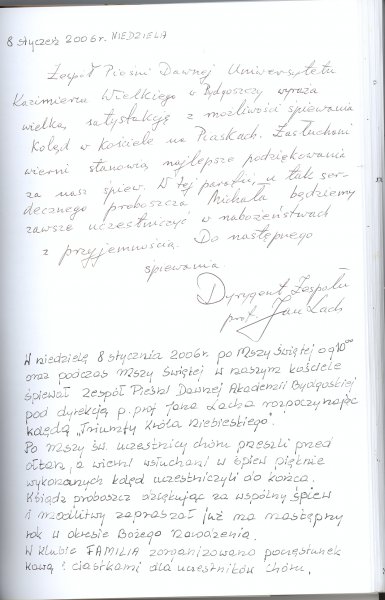 8 styczeń 2006r. NIEDZIELA
Zespół Pieśni Dawnej Uniwersytetu
Kazimierza Wielkiego w Bydgoszczy wyraża
wielką satysfakcję z możliwości śpiewania
Kolęd w kościele na Piaskach. Zasłuchani
wierni stanowią najlepsze podziękowania
za nasz śpiew. W tej parafii, u tak ser-
decznego proboszcza Michała będziemy
zawsze uczestniczyć w nabożeństwach
z przyjemnością. Do następnego
śpiewania.
Dyrygent Zespołu
prof. Jan Lach
W niedzielę 8 stycznia 2006r. po Mszy Świętej o g 10⁰⁰
oraz podczas Mszy Świętej w naszym kościele
śpiewał Zespół Pieśni Dawnej Akademii Bydgoskiej
pod dyrekcją p. prof. Jana Lacha rozpoczynając
kolędą „Tryumfy Króla Niebieskiego".
Po Mszy św. uczestnicy chóru przeszli przed
ołtarz, a wierni wsłuchani w śpiew pięknie
wykonanych kolęd uczestniczyli do końca.
Ksiądz proboszcz dziękując za wspólny śpiew
i modlitwy zapraszał już na następny
rok w okresie Bożego Narodzenia.
W klubie FAMILIA zorganizowano poczęstunek
kawą i ciastkami dla uczestników chóru.